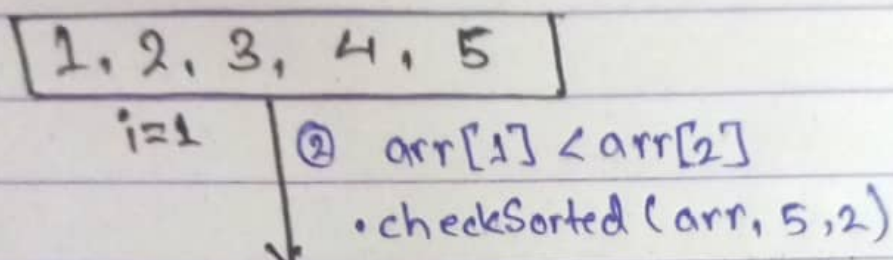 [1, 2, 3, 4, 5]
i=1
② arr[1] < arr[2]
• checkSorted (arr, 5, 2)